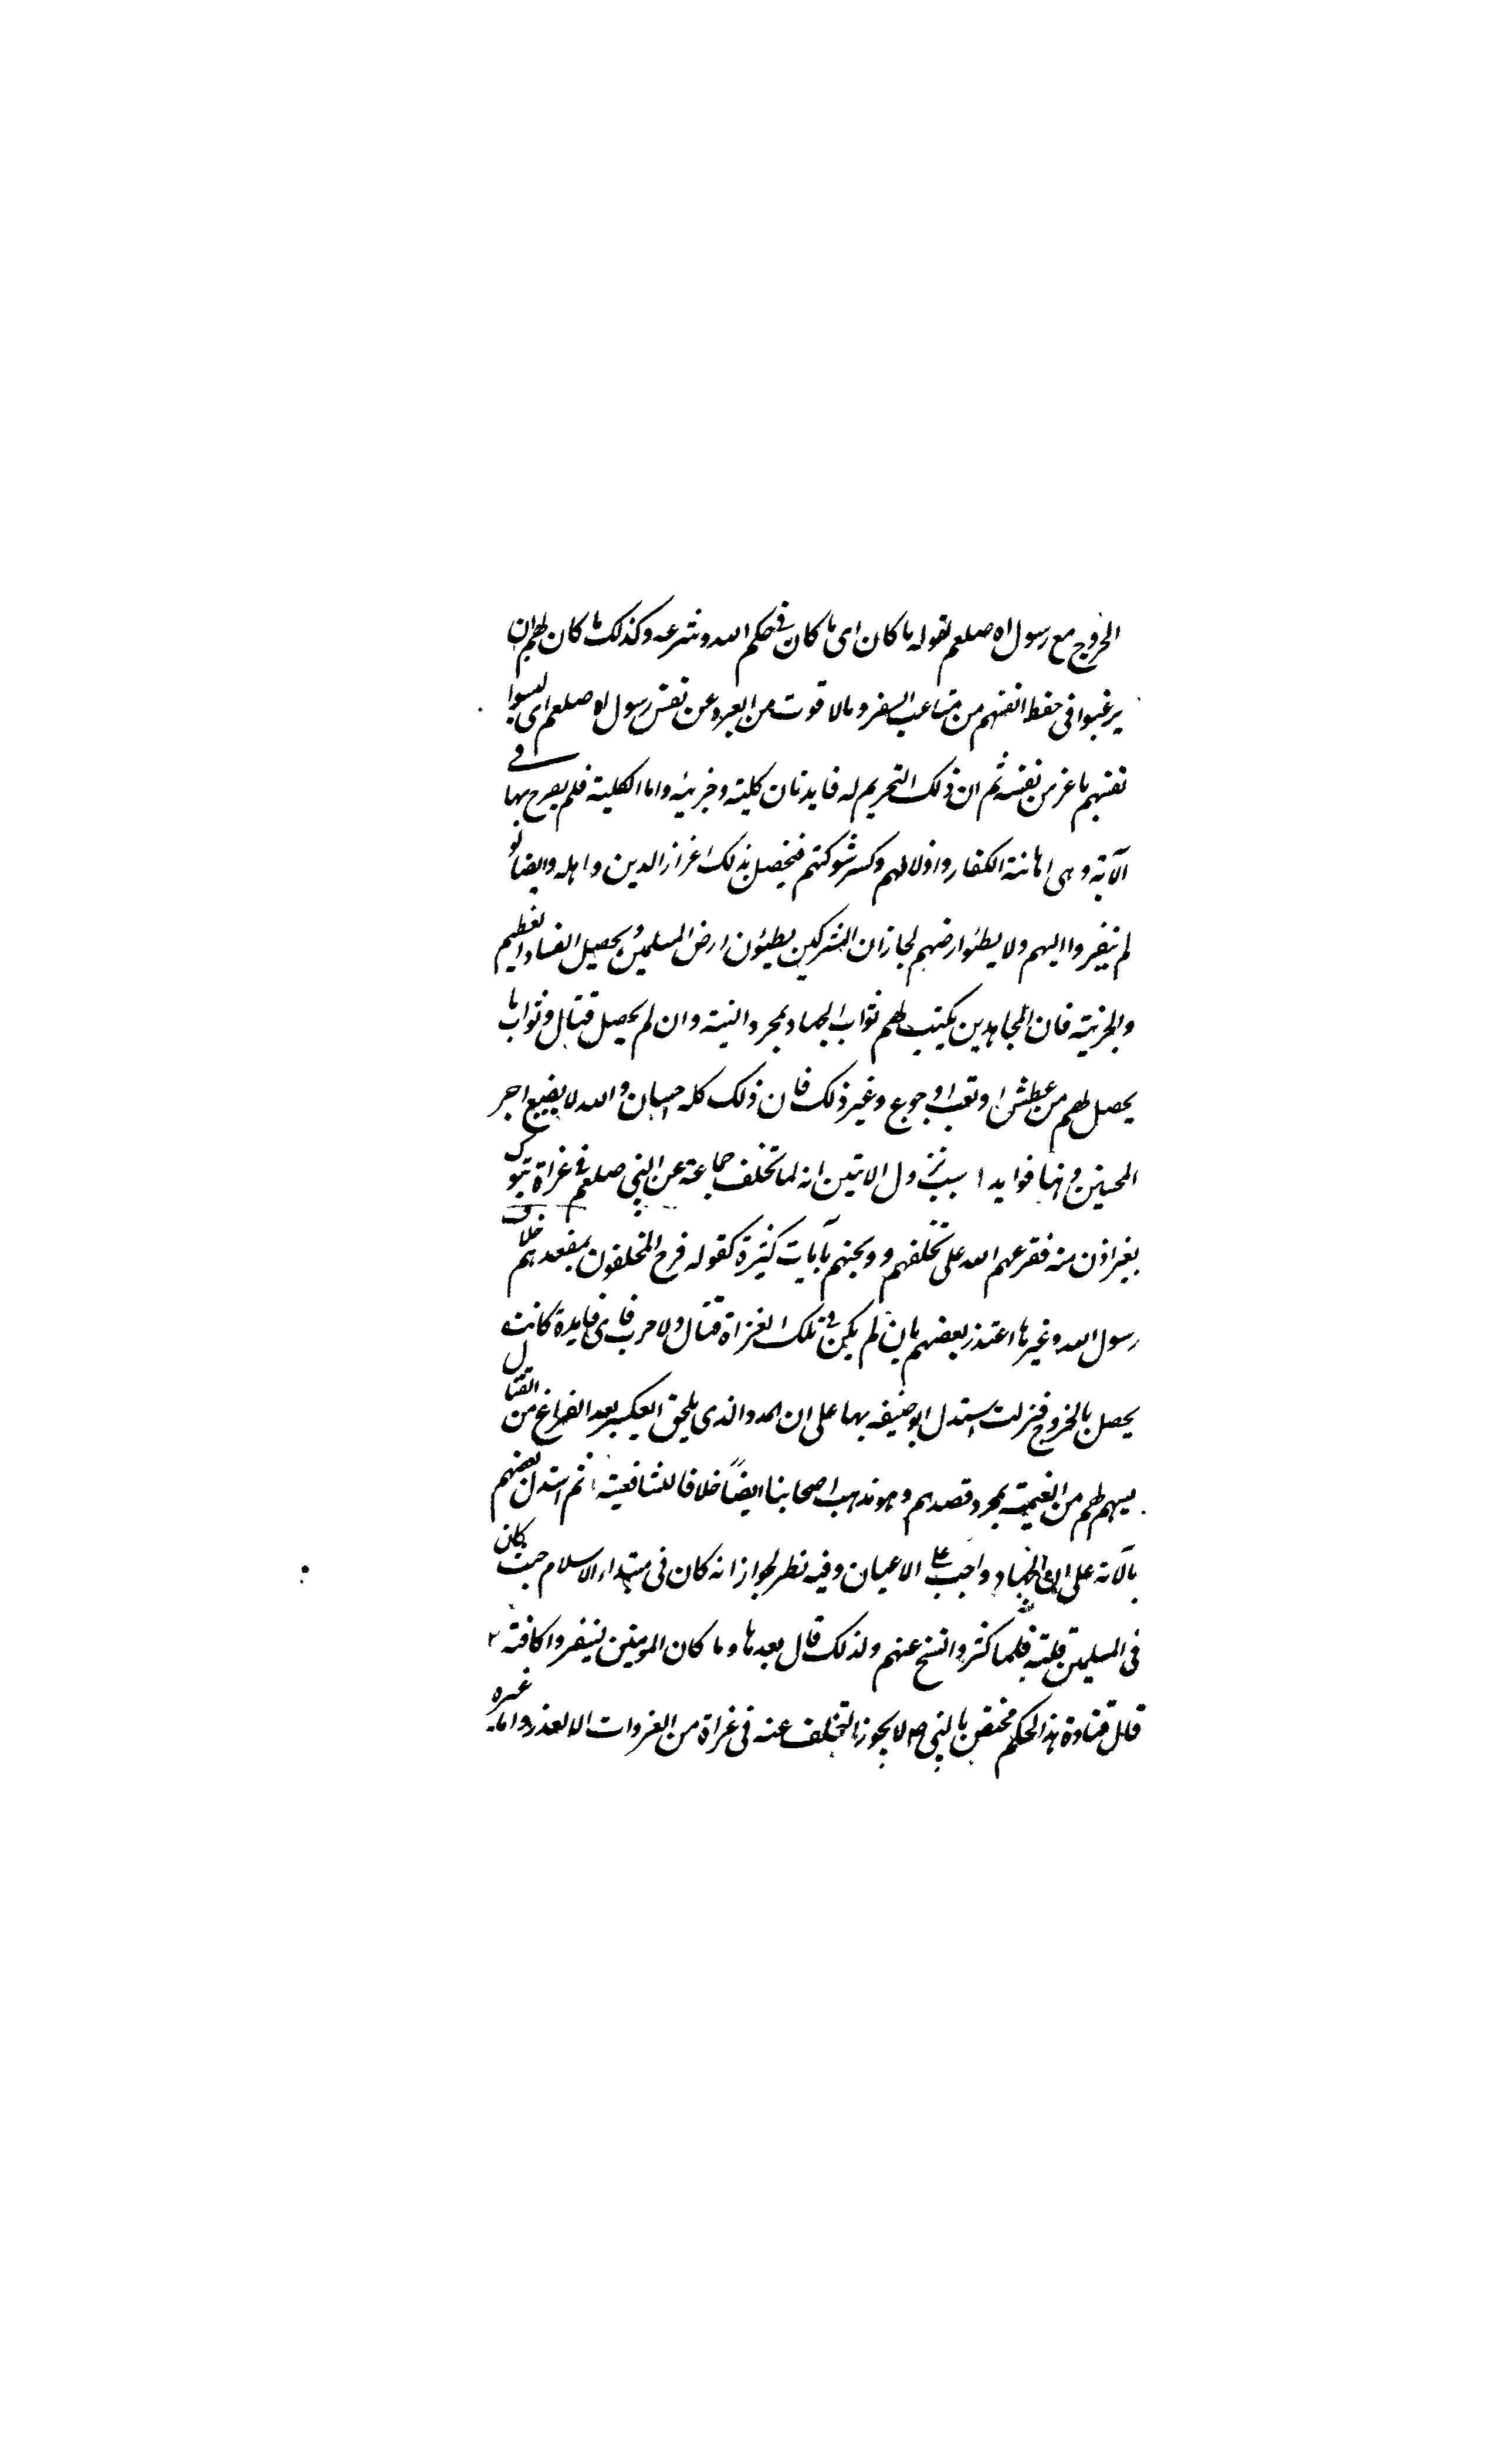 الخروج مع رسول الله صلعم لقوله ما كان اى ما كان فى حكم الله وشرعه وكذلك ما كان لهم ان
يرغبوا فى حفظ انفسهم من متاعب السفر وملاقوت من العدو عن نفس رسول الله صلعم اى ليسوا
نفسهم باعز من نفسه ثم ان ذلك التحريم له فايدتان كلية وجزئية واما الكلية فلم يصرح بها فى
الآية وهى اهانة الكفار واذلالهم وكسر شوكتهم فيحصل بذلك اعزاز الدين واهله وايضا لو
لم ينفروا اليهم ولا يطئوا ارضهم لجاز ان المشركين يطيئون ارض المسلمين ويحصل الفساد العظيم
والجزئية فان المجاهدين يكتب لهم ثواب الجهاد بمجرد النية وان لم يحصل قتال وثواب ما
يحصل لهم من عطش او تعب او جوع وغير ذلك فان ذلك كله احسان والله لا يضيع اجر
المحسنين وهنا فوايد ا سبب نزول الايتين انه لما تخلف جماعة عن النبى صلعم فى غزاة تبوك
بغير اذن منه فقرعهم الله على تخلفهم ووبخهم بآيات كثيرة كقوله فرح المخلفون بمقعدهم خلاف
رسول الله وغيرها اعتذر بعضهم بان لم يكن فى تلك الغزاة قتال ولا حرب فاى فايدة كانت
يحصل بالخروج فنزلت استدل ابو حنيفه بها على ان المدد الذى يلحق العسكر بعد الفراغ من القتال
يسهم لهم من الغنيمة بمجرد قصدهم وهو مذهب اصحابنا ايضاً خلافا للشافعية ثم استدل بعضهم
بالآية على ان الجهاد واجب على الاعيان وفيه نظر لجواز انه كان فى مبتداء الاسلام حيث كان
فى المسلمين قلة فلما كثروا انسخ عنهم ولذلك قال بعدها وما كان المومنين لينفروا كافة ٢
قال قتادة هذا الحكم مختص بالنبى ص لا يجوز التخلف عنه فى غزاة من الغزوات الا لعذر واما غيره